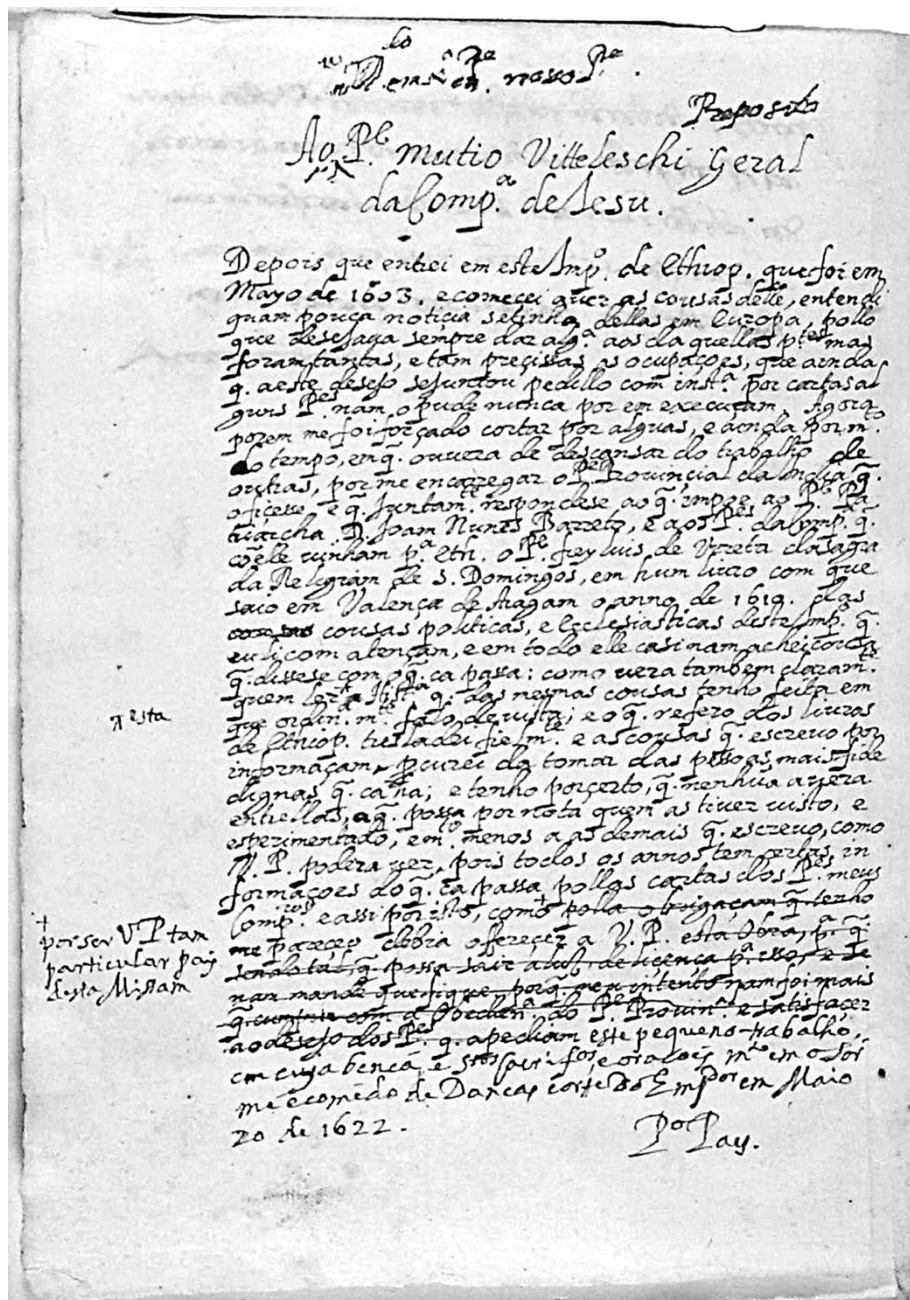 em X.º nosso P.e
Proposito
Ao P.e Mutio Vittileschi Geral
da Comp.a de Iesu.
Depois que entrei em este Imp.º de Ethiop. que foi em
Mayo de 1603. e comecei a ver as cousas delle, entendi
quam pouca noticia se tinha dellas em Europa, pollo
que desejaua sempre dar alg.a aos daquellas p.tes mas
foram tantas, e tam precisas as ocupações, que ainda
q̃. a este desejo se juntou pedillo com inst.a por cartas al
guns P.es nam o pude nunca por em execuçam. Agora
porem me foi forçado cortar por alguas, e ainda por m.to
do tempo, em q̃. ouuera de descansar do trabalho de
outras, por me encarregar o P.e Prouincial da India q̃.
o fiçesse e q̃. juntam.te respondese ao q̃. impoe ao P.e Pa
triarcha D. Joam Nunes Barreto, e aos P.es da Comp.a q̃.
cõ elle vinham p.a Eth. o P.e frey luis de Vrreta da sagra
da Religiam de S. Domingos, em hum liuro com que
saio em Valença de Aragam o anno de 1610. das
cousas politicas, e Ecclesiasticas deste Imp.º q̃.
eu li com atençam, e em todo elle casi nam achei cousa
q̃. dissese com o q̃. ca passa: como vera tambem claram.te
quem ler a Hist.a q̃. das mesmas cousas tenho feita em
que ordin.a m.te falo de vista; e o q̃. refero dos liuros
de Ethiop. tresladei fielm.te e as cousas q̃. escreuo por
informaçam, procurei da tomar das pessoas mais fide
dignas q̃. ca hã; e tenho por çerto, q̃. nenhũa auera
entre ellas, a q̃. possa por nota quem as tiuer uisto, e
esperimentado, e m.to menos a as demais q̃. escreuo, como
V. P. podera ver, pois todos os annos tem certas in
formações do q̃. ca passa pollas cartas dos P.es meus
Comp.ros e assi por isto, como + polla obrigaçam q̃. tenho
me pareçeo deuia ofereçer a V. P. esta Obra, p.a q̃.
sendo tal, q̃. possa sair a luz, de licença p.a isso, e se
nam mande que fique, porq̃. meu intento nam foi mais
q̃. cumprir com a obedien.a do P.e Prouin.al e satisfaçer
ao desejo dos P.es q̃. a pediam este pequeno trabalho,
em cuja bençã, e s.tos sacrif.os e orações m.to em o S.or
me ẽcomẽdo de Dancas corte do Emp.or em Maio
20 de 1622.
P.o Pay.
esta
+
por ser V. P. tam
particular pay
desta Missam